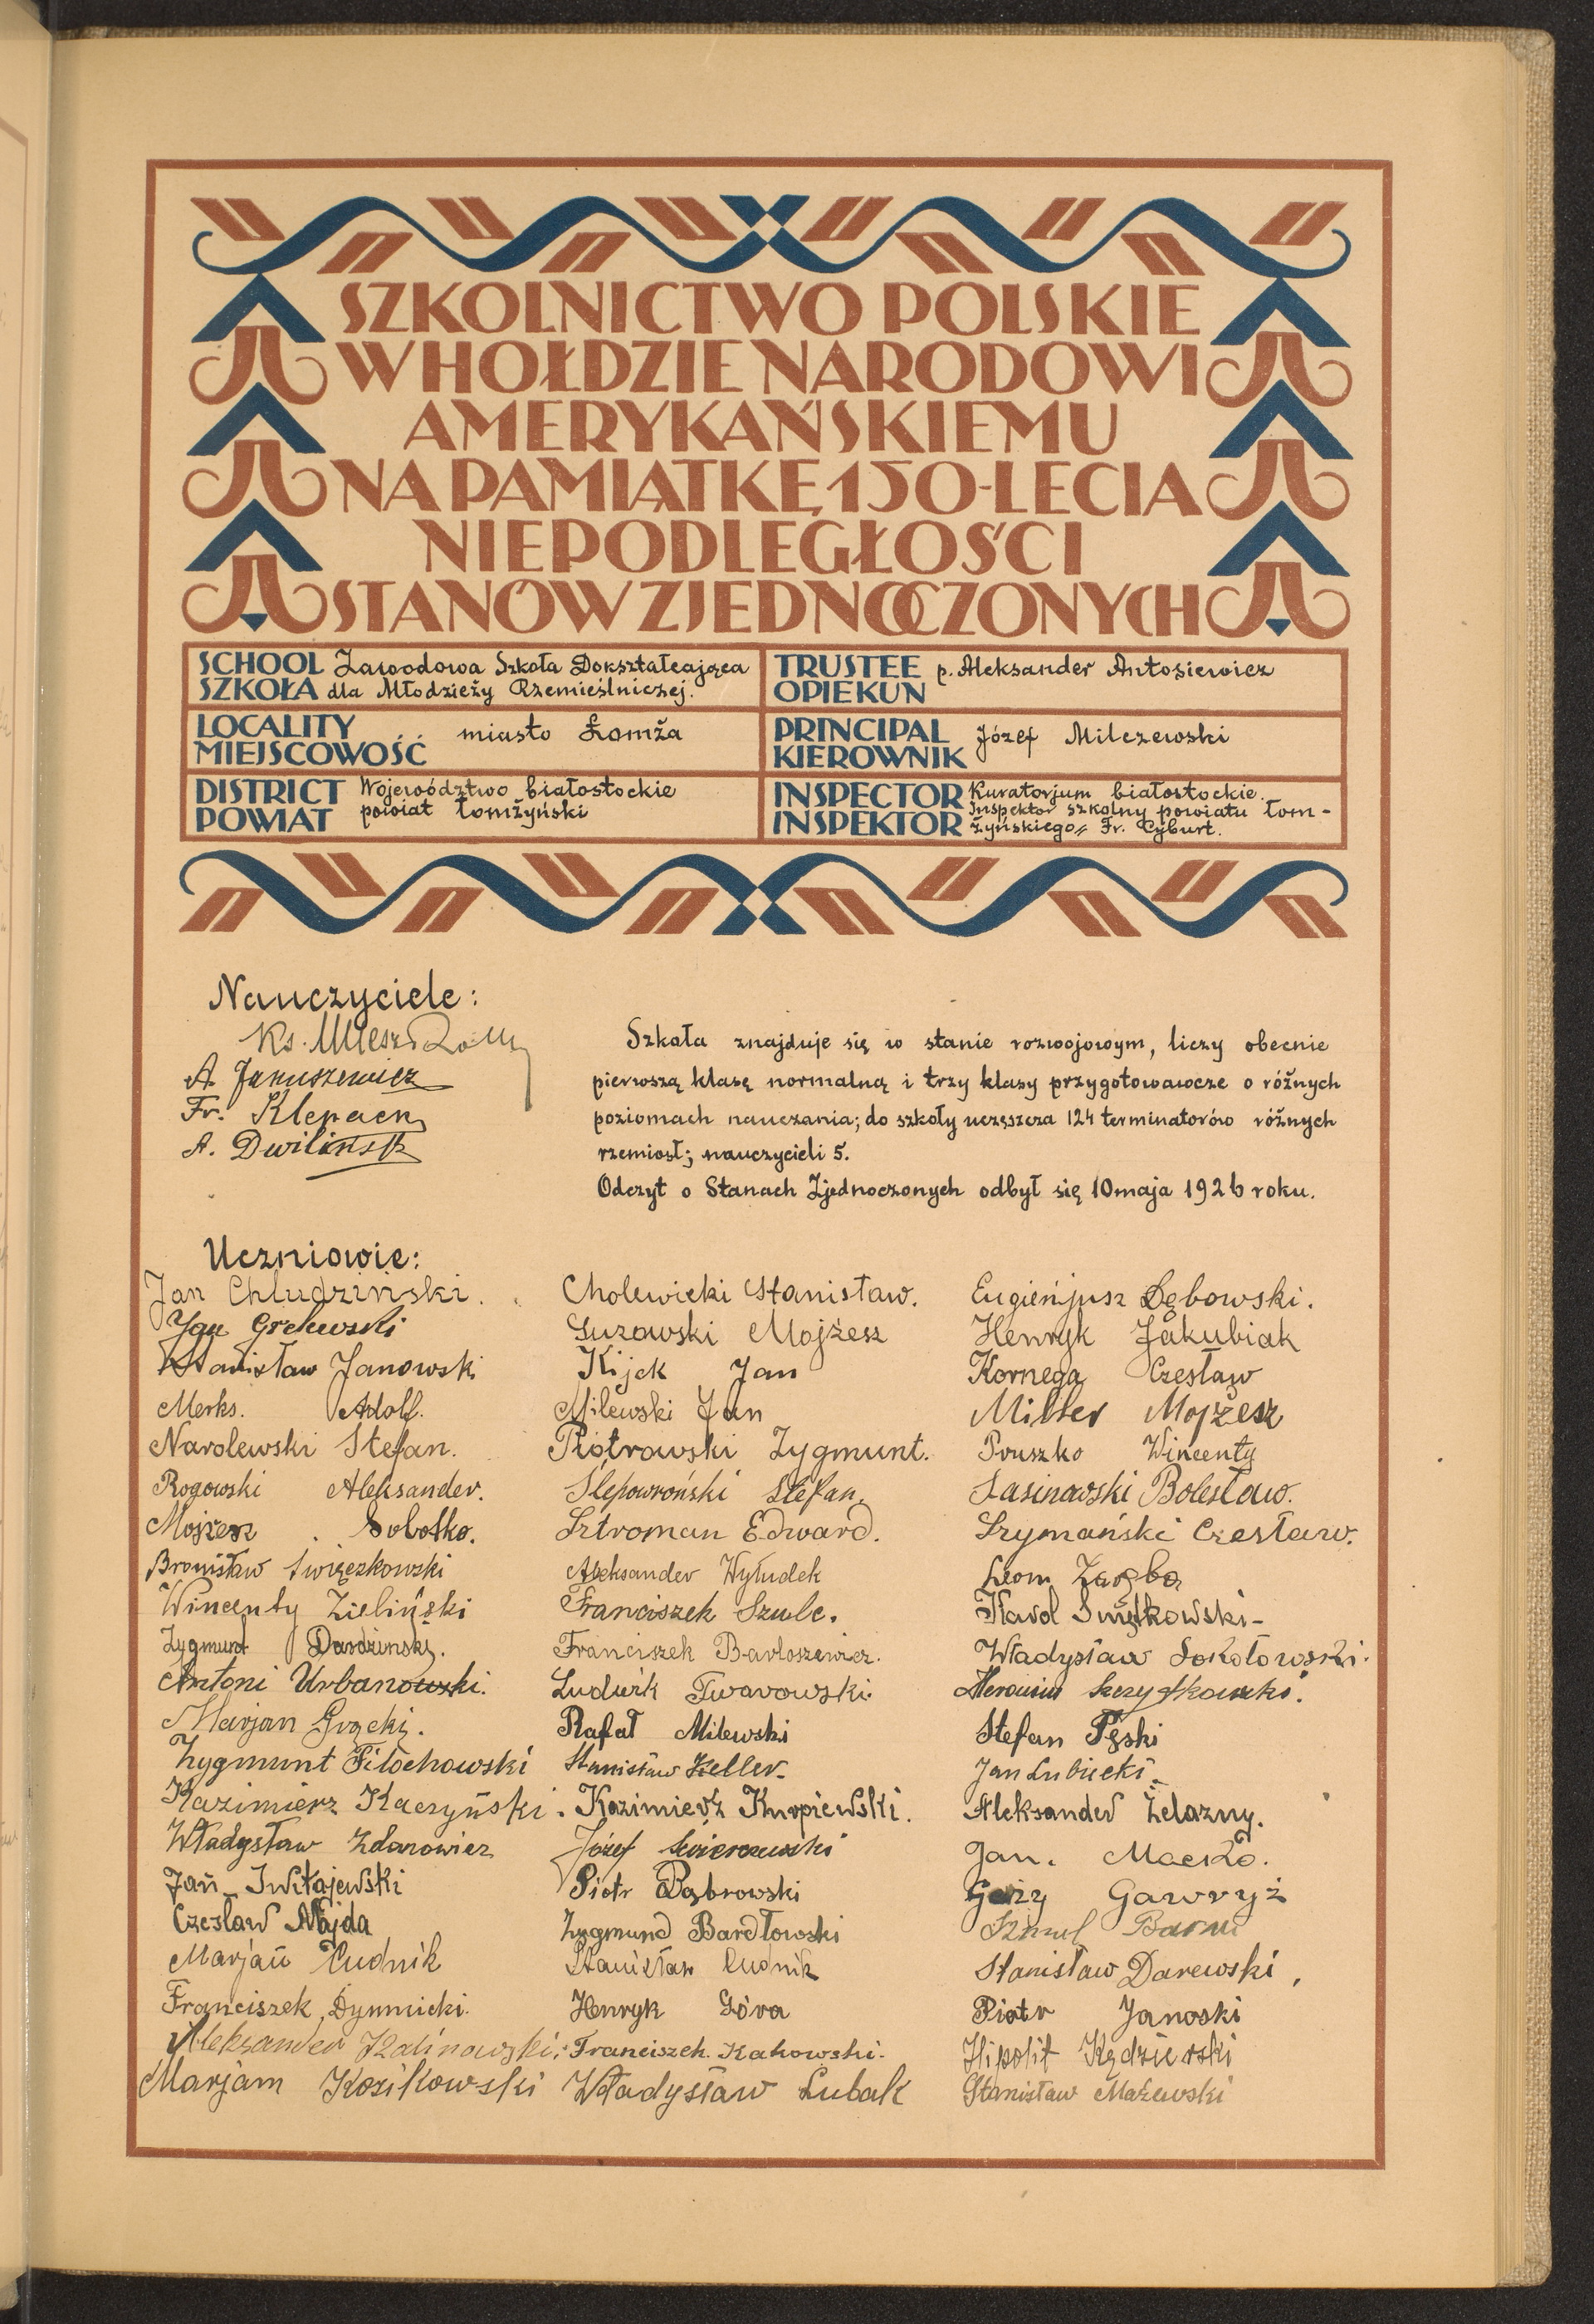 SZKOLNICTWO POLSKIE
W HOŁDZIE NARODOWI
AMERYKAŃSKIEMU
NA PAMIĄTKĘ 150-LECIA
NIEPODLEGŁOŚCI
STANÓW ZJEDNOCZONYCH
SCHOOL Zawodowa Szkoła Dokształcająca
SZKOŁA dla Młodzieży Rzemieślniczej.
TRUSTEE p. Aleksander Antosiewicz
OPIEKUN
LOCALITY miasto Łomża
MIEJSCOWOŚĆ
PRINCIPAL Józef Milczewski
KIEROWNIK
DISTRICT Województwo białostockie
POWIAT powiat łomżyński
INSPECTOR Kuratorjum białostockie.
INSPEKTOR Inspektor szkolny powiatu łom-
żyńskiego Fr. Cyburt.
Nauczyciele:
Ks.
A. Januszewicz
Fr. Klepacz
A. Dwilińsk
Szkoła znajduje się w stanie rozwojowym, liczy obecnie
pierwszą klasę normalną i trzy klasy przygotowawcze o różnych
poziomach nauczania; do szkoły uczęszcza 124 terminatorów różnych
rzemiosł; nauczycieli 5.
Odczyt o Stanach Zjednoczonych odbył się 10 maja 1926 roku.
Uczniowie:
Jan Chludziński.
Jan Grelewski
Stanisław Janowski
Merks. Adolf.
Narolewski Stefan.
Rogowski Aleksander.
Mojżesz Sobotko.
Bronisław Święczkowski
Wincenty Zieliński
Zygmunt Dardziński.
Antoni Urbanowski.
Marjan Grącki.
Zygmunt Filochowski
Kazimierz Kaczyński.
Władysław Zdanowicz
Jan Iwitajewski
Czesław Majda
Marjan Rudnik
Franciszek Dymnicki.
Aleksander Kalinowski.
Marjam Kozikowski
Cholewicki Stanisław.
Guzowski Mojżesz
Kijek Jan
Milewski Jan
Piotrowski Zygmunt.
Ślepowroński Stefan.
Sztroman Edward.
Aleksander Wyłudek
Franciszek Szulc.
Franciszek Bartoszewicz.
Ludwik Twarowski.
Rafał Milewski
Stanisław Keller.
Kazimierz Kurpiewski.
Józef Świerczewski
Piotr Dąbrowski
Zygmund Bardłowski
Stanisław Rudnik
Henryk Góra
Franciszek. Kakowski.
Władysław Lubak
Eugieńjusz Dębowski.
Henryk Jakubiak
Kornega Czesław
Miller Mojżesz
Pruszko Wincenty
Sasinowski Bolesław.
Szymański Czesław.
Leon Zaręba
Karol Smętkowski
Władysław Sokołowski.
Stefan Pęski
Jan Lubiecki
Aleksander Żelazny.
Jan. Maćko.
Gawryś
Stanisław Darewski,
Piotr Janoski
Hipolit Kędzierski
Stanisław Mażewski